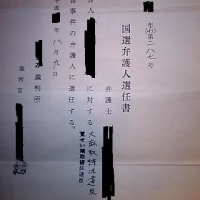 年(わ)第二八七号
国選弁護人選任書
弁護士
人 に対する 大麻取締法違反
覚せい剤取締法違反
事件の弁護人に選任する。
年八月九日
裁判所
裁判官